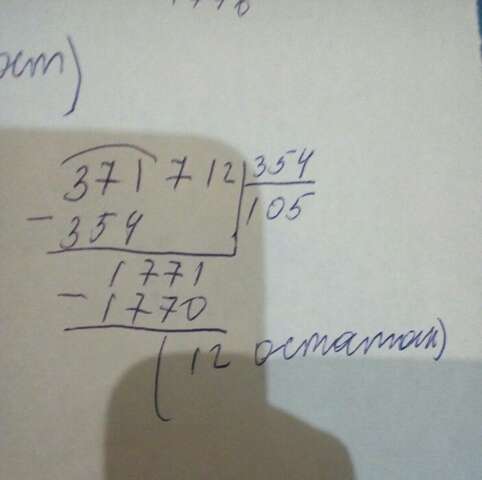 ост)
371712 354
- 354 105
1771
- 1770
(12 остаток)